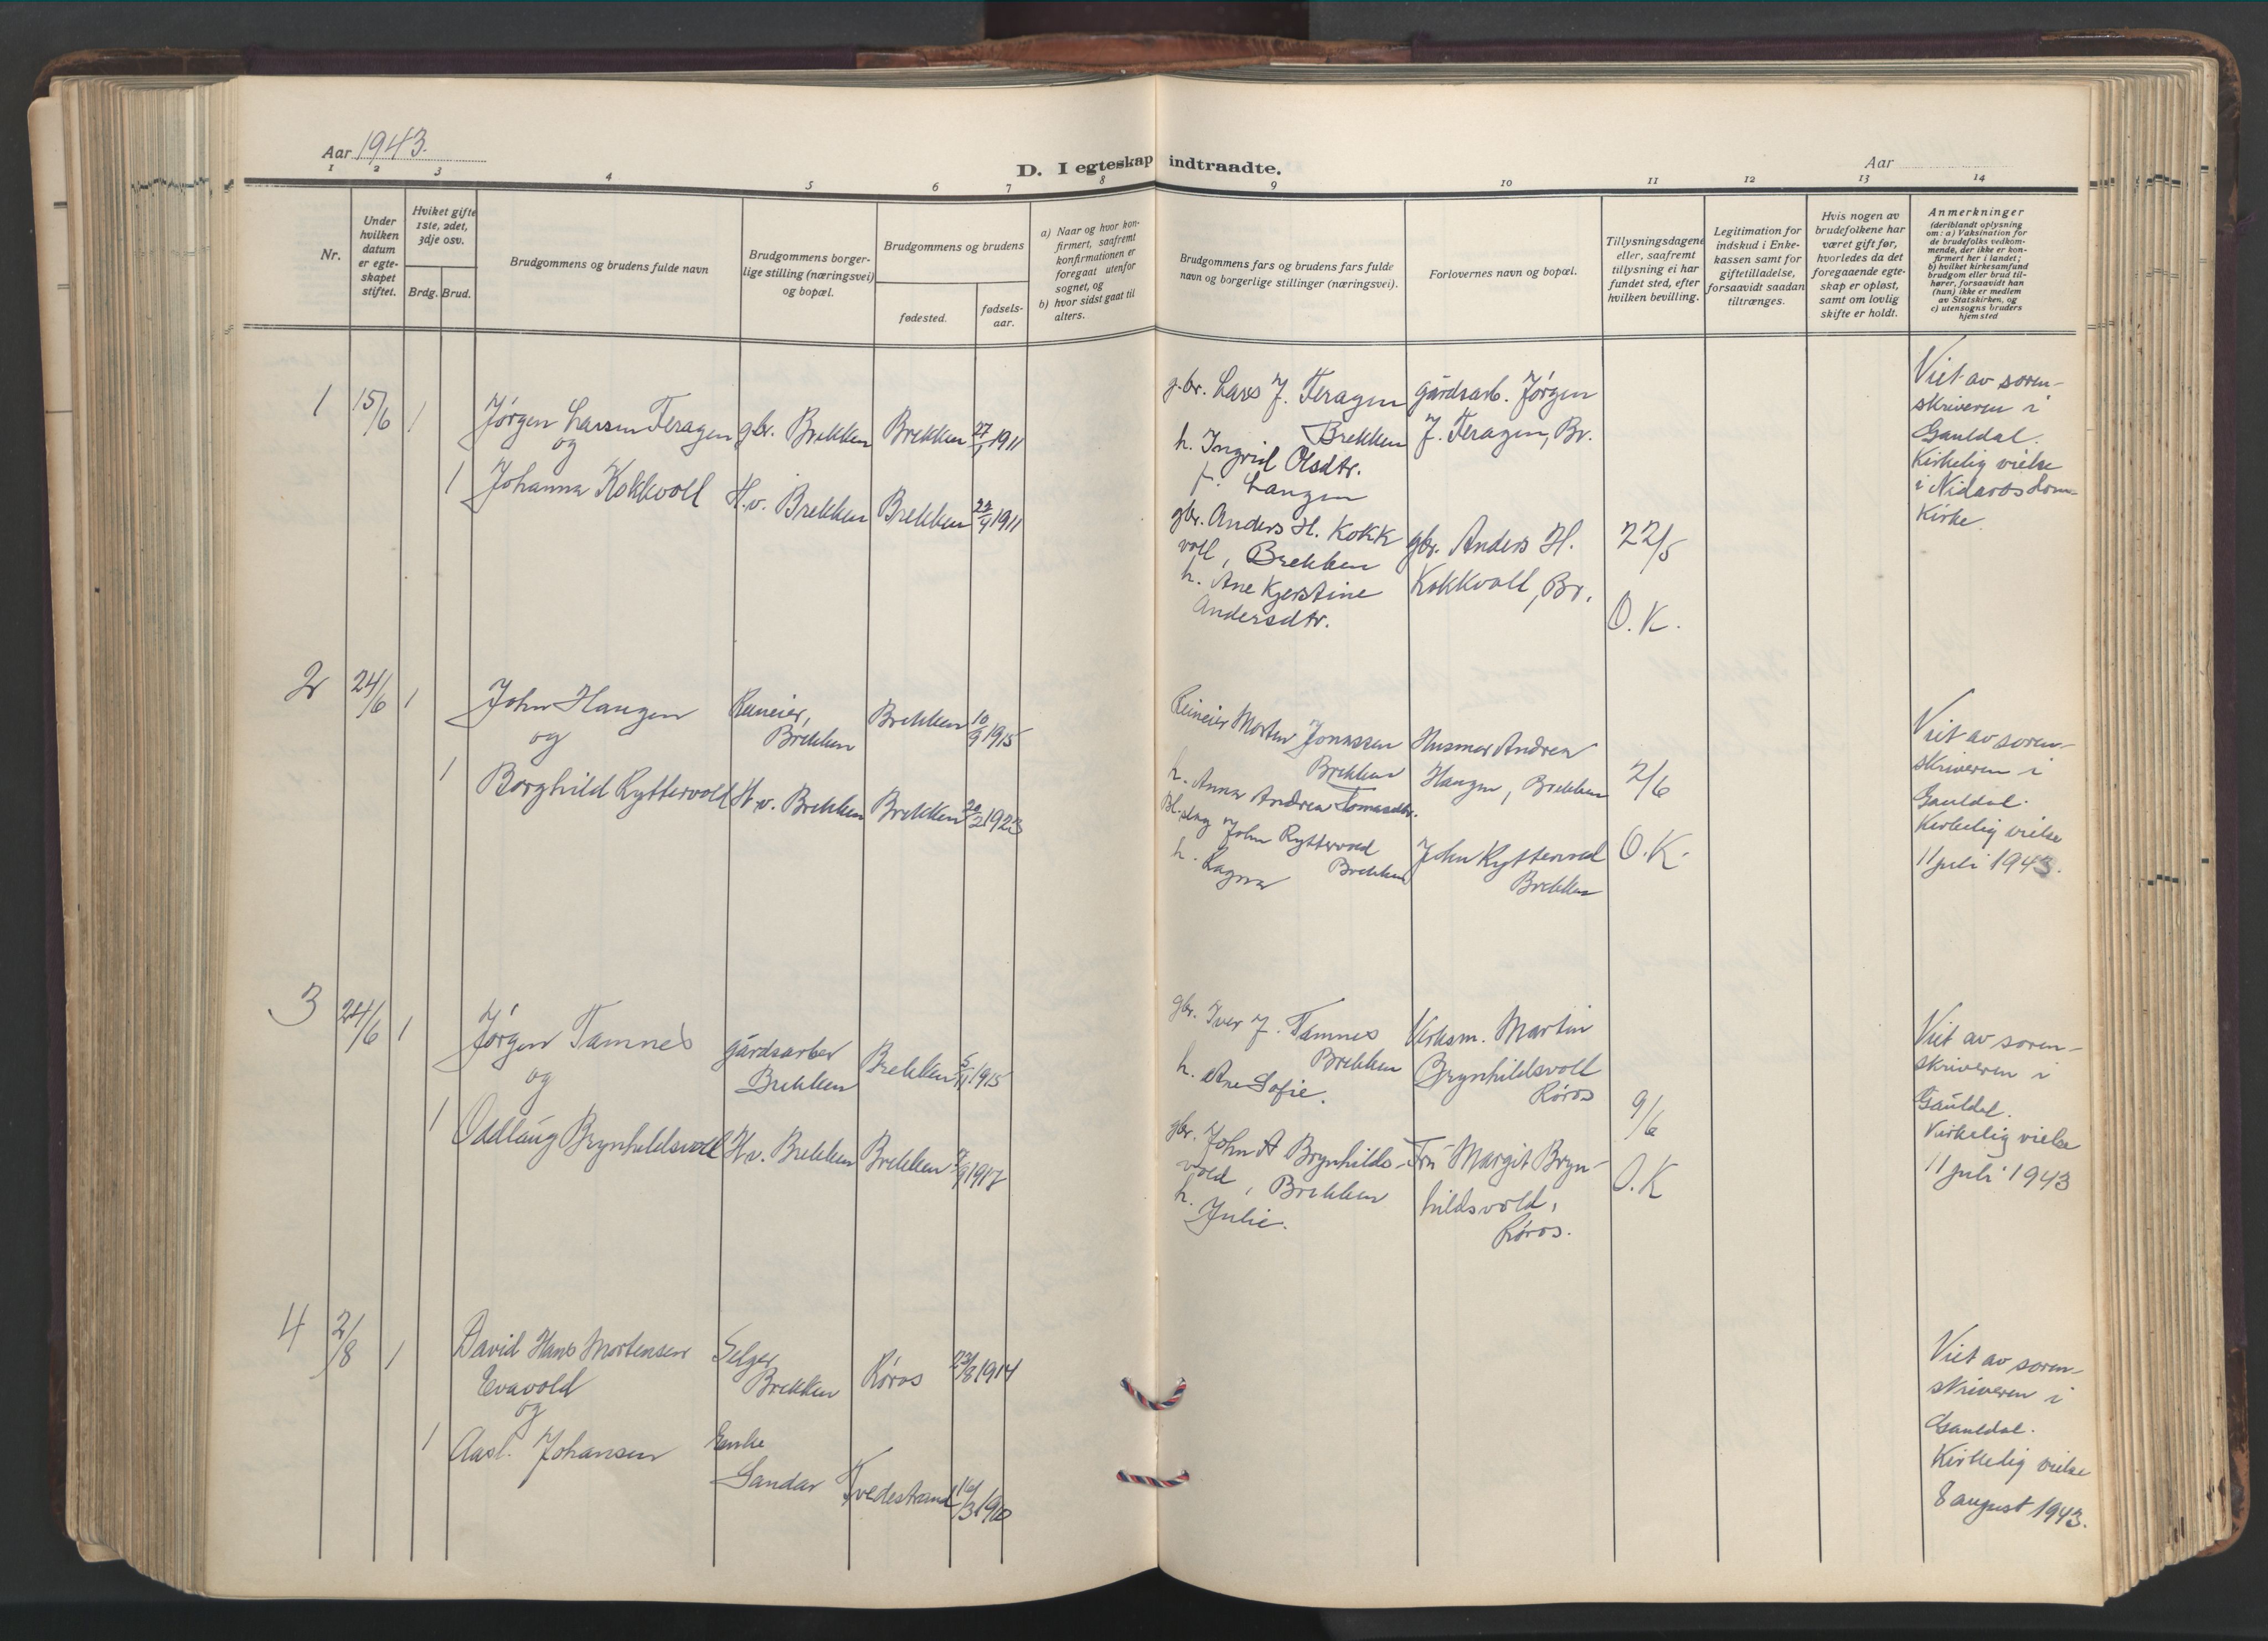 Aar 1943.
D. I egteskap indtraadte.
Aar
1 2 3 4 5 6 7 8 9 10 11 12 13 14
Nr.
Under
hvilken
datum
er egte-
skapet
stiftet.
Hviket gifte
1ste, 2det,
3dje osv.
Brdg. Brud.
Brudgommens og brudens fulde navn
Brudgommens borger-
lige stilling (næringsvei)
og bopæl.
Brudgommens og brudens
fødested.
fødsels-
aar.
a) Naar og hvor kon-
firmert, saafremt
konfirmationen er
foregaat utenfor
sognet, og
b) hvor sidst gaat til
alters.
Brudgommens fars og brudens fars fulde
navn og borgerlige stillinger (næringsvei).
Forlovernes navn og bopæl.
Tillysningsdagene
eller, saafremt
tillysning ei har
fundet sted, efter
hvilken bevilling.
Legitimation for
indskud i Enke-
kassen samt for
giftetilladelse,
forsaavidt saadan
tiltrænges.
Hvis nogen av
brudefolkene har
været gift før,
hvorledes da det
foregaaende egte-
skap er opløst,
samt om lovlig
skifte er holdt.
Anmerkninger
(deriblandt oplysning
om: a) Vaksination for
de brudefolks vedkom-
mende, der ikke er kon-
firmert her i landet;
b) hvilket kirkesamfund
brudgom eller brud til-
hører, forsaavidt han
(hun) ikke er medlem
av Statskirken, og
c) utensogns bruders
hjemsted
1 15/6 1 Jørgen Larsen Feragen gbr. Brekken Brekken 27/1 1911
og
1 Johanna Kokkvoll H.v. Brekken Brekken 22/4 1911
gbr. Lars J. Feragen
Brekken
h. Ingrid Olsdtr.
f. Langen
gbr. Anders H. Kokk
voll, Brekken
h. Ane Kjerstine
Andersdtr.
Gårdsarb. Jørgen
J. Feragen, Br.
gbr. Anders H.
Kokkvoll, Br.
22/5
O.K.
Viet av soren-
skriveren i
Gauldal.
Kirkelig vielse
i Nidaros dom-
kirke.
2 24/6 1 John Haugen Reineier, Brekken 10/9 1915
Brekken
og
1 Borghild Ryttervold H.v. Brekken Brekken 20/2 1923
Reineier Morten Jonassen
Brekken
h. Anna Andrea Tomasdtr.
John Ryttervold
Brekken
h. Ragna
Husmor Andrea
Haugen, Brekken
John Ryttervold
Brekken
2/6
O.K.
Viet av soren-
skriveren i
Gauldal.
Kirkelig vielse
11 juli 1943.
3 24/6 1 Jørgen Tamnes gårdsarber Brekken 5/11 1915
Brekken
og
1 Oddlaug Brynhildsvoll H.v. Brekken Brekken 7/9 1917
gbr. Iver J. Tamnes
Brekken
h. Ane Sofie.
gbr. John A Brynhilds-
vold, Brekken
h.
Julie.
Verksm. Martin
Brynhildsvoll
Røros
Fru Margit Bryn-
hildsvold,
Røros.
9/6
O.K
Viet av soren-
skriveren i
Gauldal.
Kirkelig vielse
11 juli 1943
4 2/8 1 David Hans Mortensen Selger Røros 1914
Evavold Brekken
og
1 Aasl. Johansen Enke
Sandar Tvedestrand
Viet av soren-
skriveren i
Gauldal.
Kirkelig vielse
8 august 1943.